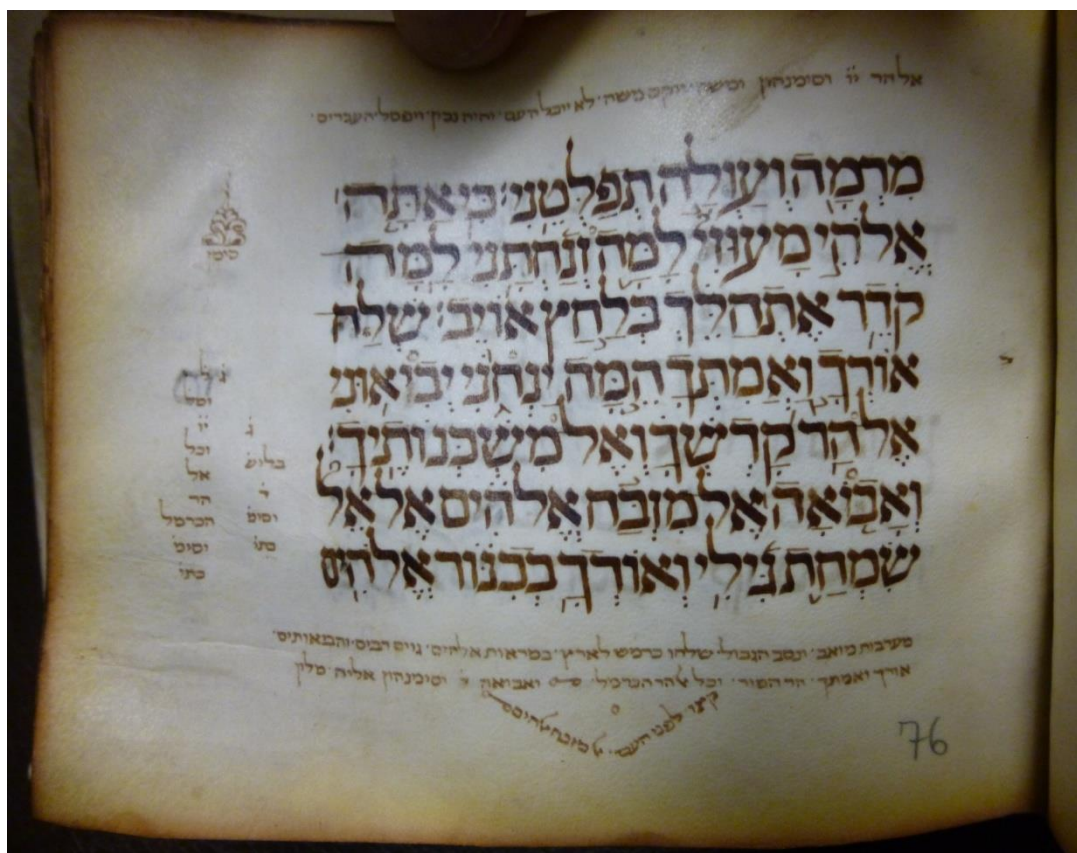 אל הר יו וסימנהון ומשה ויקם משה לא יוכל העם יהיה נכון ויפסל העברים
מִרְמָה וְעַוְלָה תְפַלְּטֵנִי׃ כִּי אַתָּה
אֱלֹהֵי מָעוּזִּי לָמָה זְנַחְתָּנִי לָמָּה
קֹדֵר אֶתְהַלֵּךְ בְּלַחַץ אוֹיֵב׃ שְׁלַח
אוֹרְךָ וַאֲמִתְּךָ הֵמָּה יַנְחוּנִי יְבִיאוּנִי
אֶל הַר קָדְשְׁךָ וְאֶל מִשְׁכְּנוֹתֶיךָ׃
וְאָבוֹאָה אֶל מִזְבַּח אֱלֹהִים אֶל אֵל
שִׂמְחַת גִּילִי וְאוֹדְךָ בְכִנּוֹר אֱלֹהִים
וסימ
וכל
אל
הר
הכרמל
וסימ
כתו
בליש
וסימ
כתו
מערבות מואב ונסב הגבול שלחו לארץ במראות אלהים גוים רבים
אורך ואמתך הר וכל אל הר הכרמל ואבואה ג וסימנהון אליה מלין
לפני העם אל מזבח אלהים
76